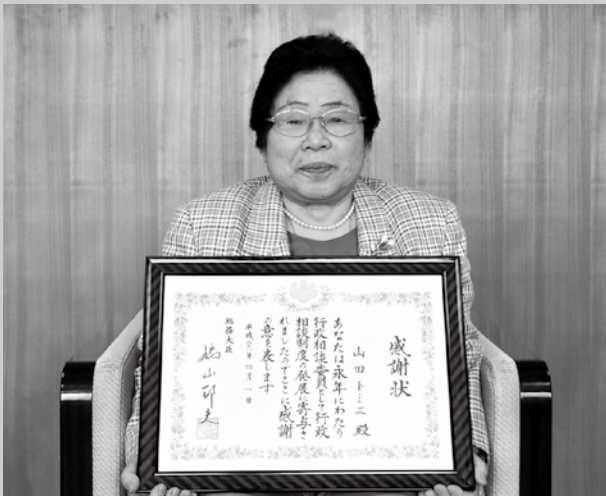 感謝状
山田トミエ 殿
あなたは永年にわたり
行政相談委員として行政
相談制度の発展に寄与さ
れましたのでここに感謝
の意を表します
平成二一年四月一日
総務大臣
鳩山邦夫